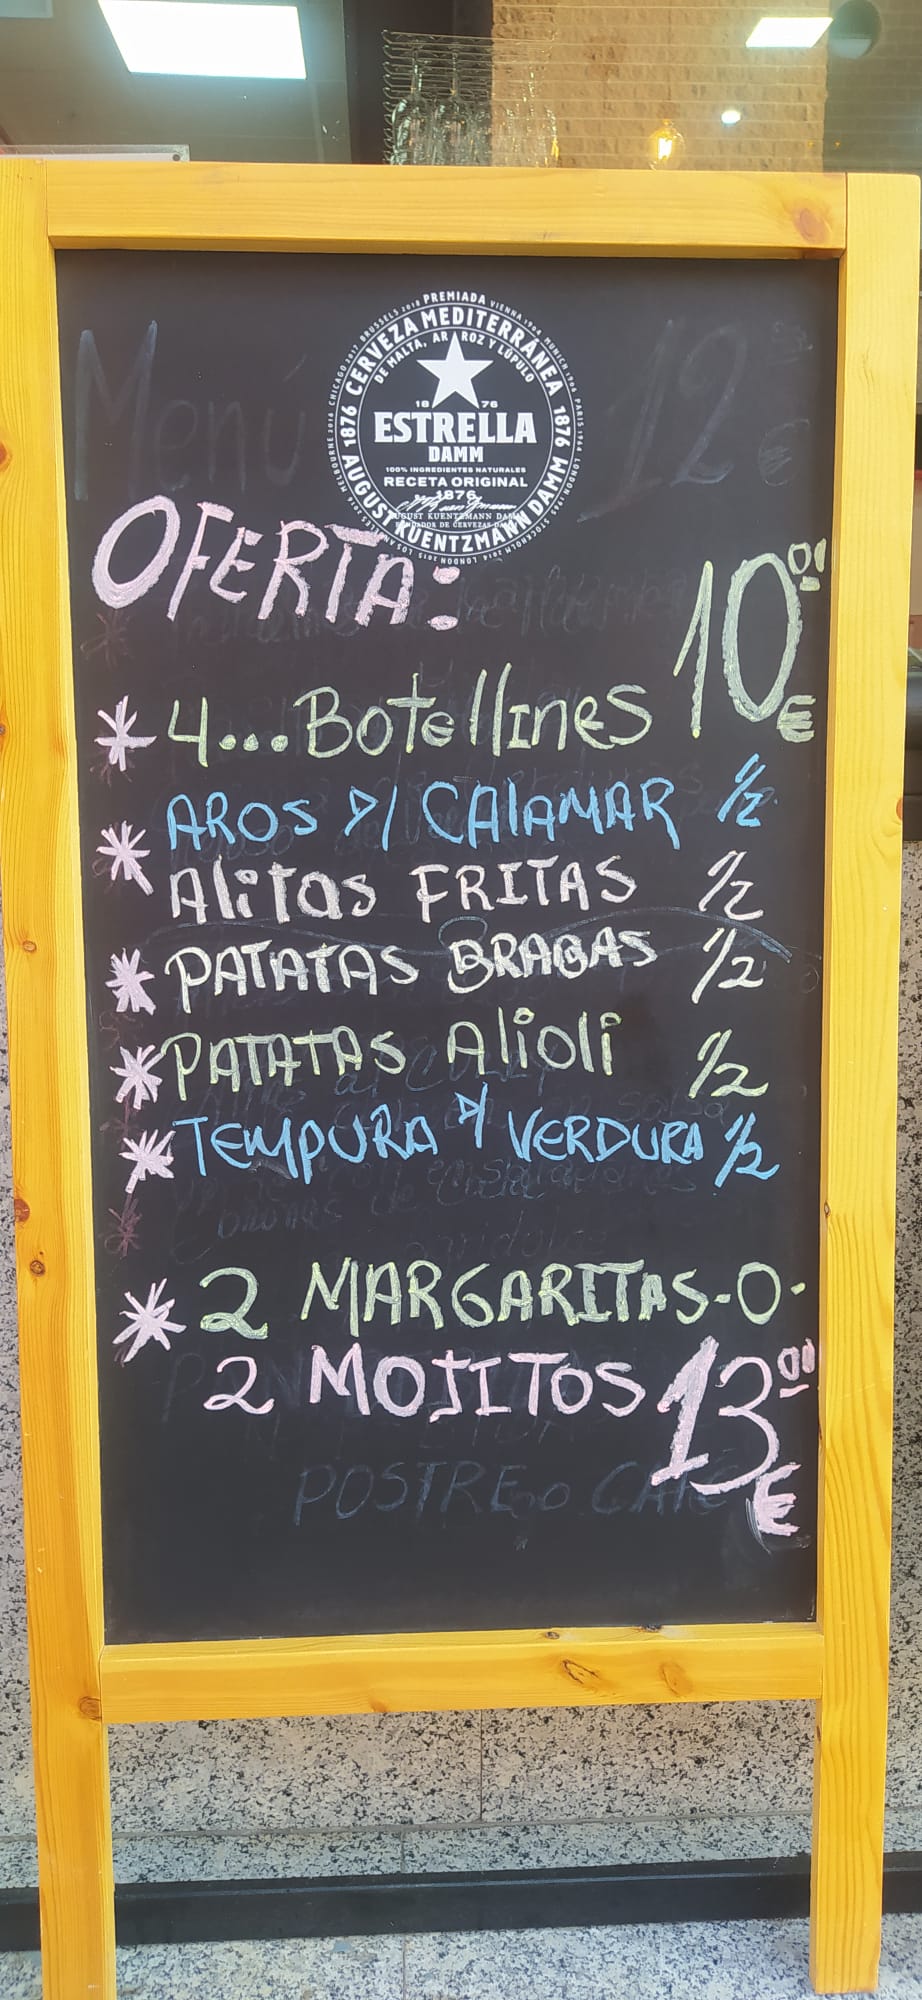 PREMIADA VIENNA 1904 MUNICH 1906 PARIS 1964 LONDON
CHICAGO 2012 BRUSSELS 2018
MELBOURNE 2014
LONDON 2014 STOCKHOLM
LOS 2015
CERVEZA MEDITERRÁNEA
DE MALTA, ARROZ Y LÚPULO
1876 AUGUST KUENTZMANN DAMM 1876
1876
ESTRELLA
DAMM
100% INGREDIENTES NATURALES
RECETA ORIGINAL
1876
AUGUST KUENTZMANN DAMM
FUNDADOR DE CERVEZAS DAMM
Menú 12 €
OFERTA:
10'00 €
* 4...BOTellINES
AROS D/ CAlAMAR 1/2
* AlitaS FRITAS 1/2
* PATATAS BRABAS 1/2
* PATATAS Alioli 1/2
* TEMPURA D/ VERDURA 1/2
* 2 MARGARITAS-O-
2 MOJITOS 13'00 €
POSTRE o CAFÉ